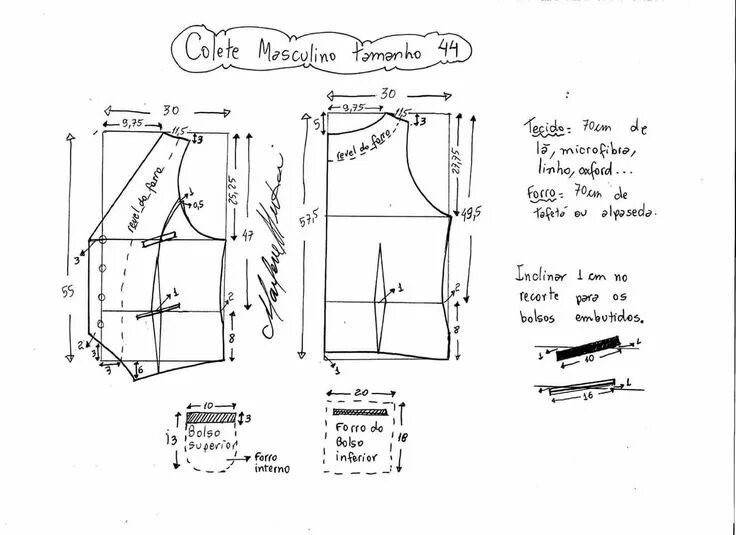 Colete Masculino tamanho 44
30
9,75
11,5
3
revel do forro
25,25
1
0,5
47
3
55
1
2
2
3
3
6
8
30
9,75
11,5
5
3
revel do forro
27,75
57,5
49,5
1
2
8
Tecido = 70cm de
lã, microfibra,
linho, oxford...
Forro = 70cm de
tafetá ou alpaseda.
Inclinar 1 cm no
recorte para os
bolsos embutidos.
1
10
1
1
16
1
10
3
13
Bolso
superior
forro
interno
20
18
Forro do
Bolso
inferior